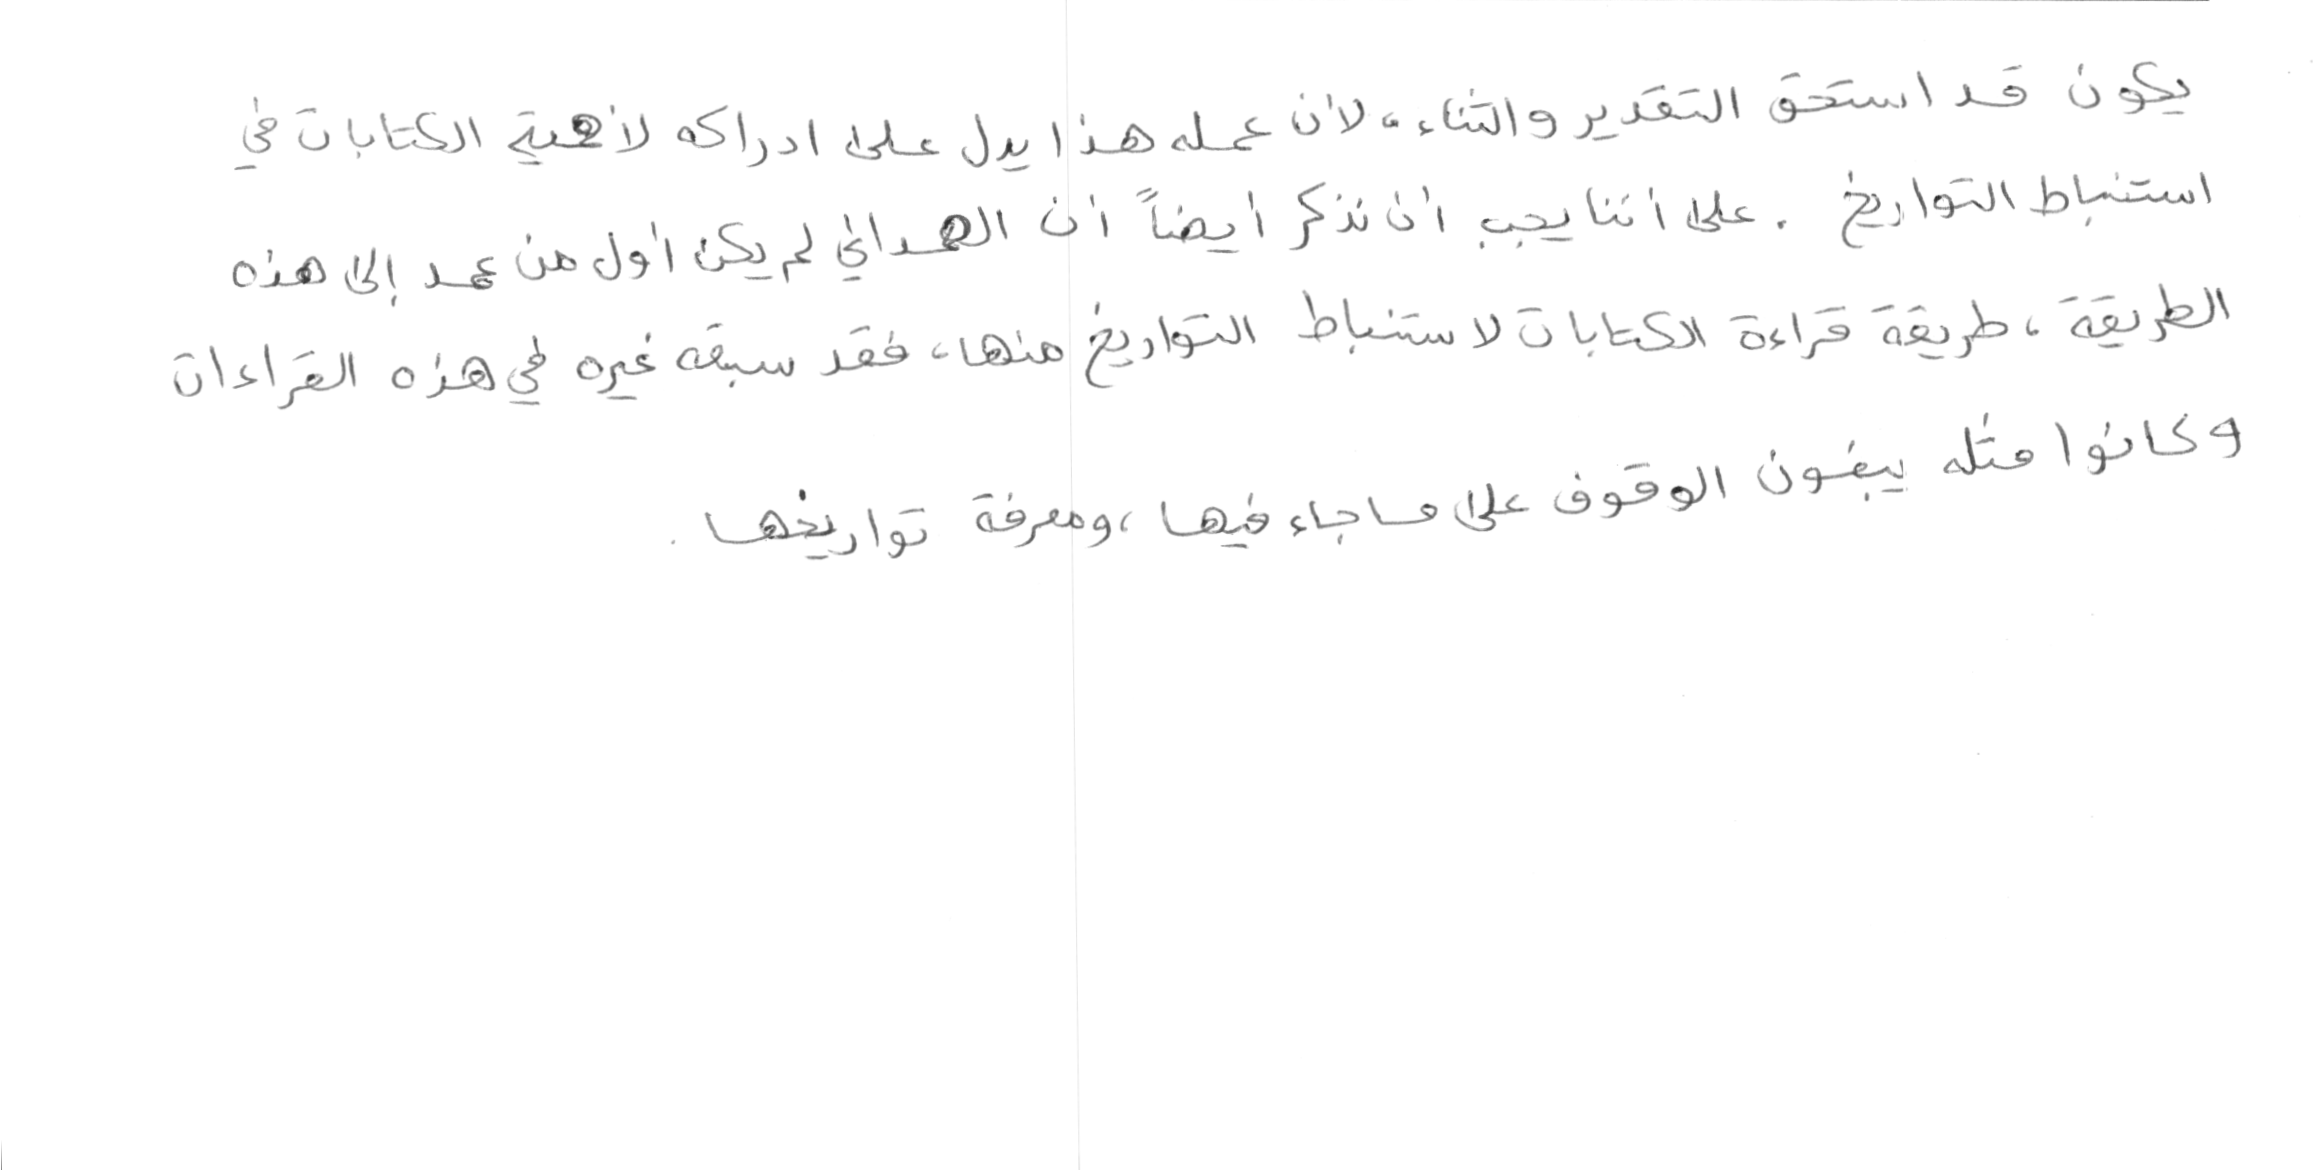 يكون قد استحق التقدير والثناء، لأن عمله هذا يدل على ادراكه لأهمية الكتابات في
استنباط التواريخ . على أننا يجب أن نذكر أيضاً أن الهمداني لم يكن أول من عمد إلى هذه
الطريقة ، طريقة قراءة الكتابات لاستنباط التواريخ منها، فقد سبقه غيره في هذه القراءات
وكانوا مثله يبغون الوقوف على ما جاء فيها ،ومعرفة تواريخها .